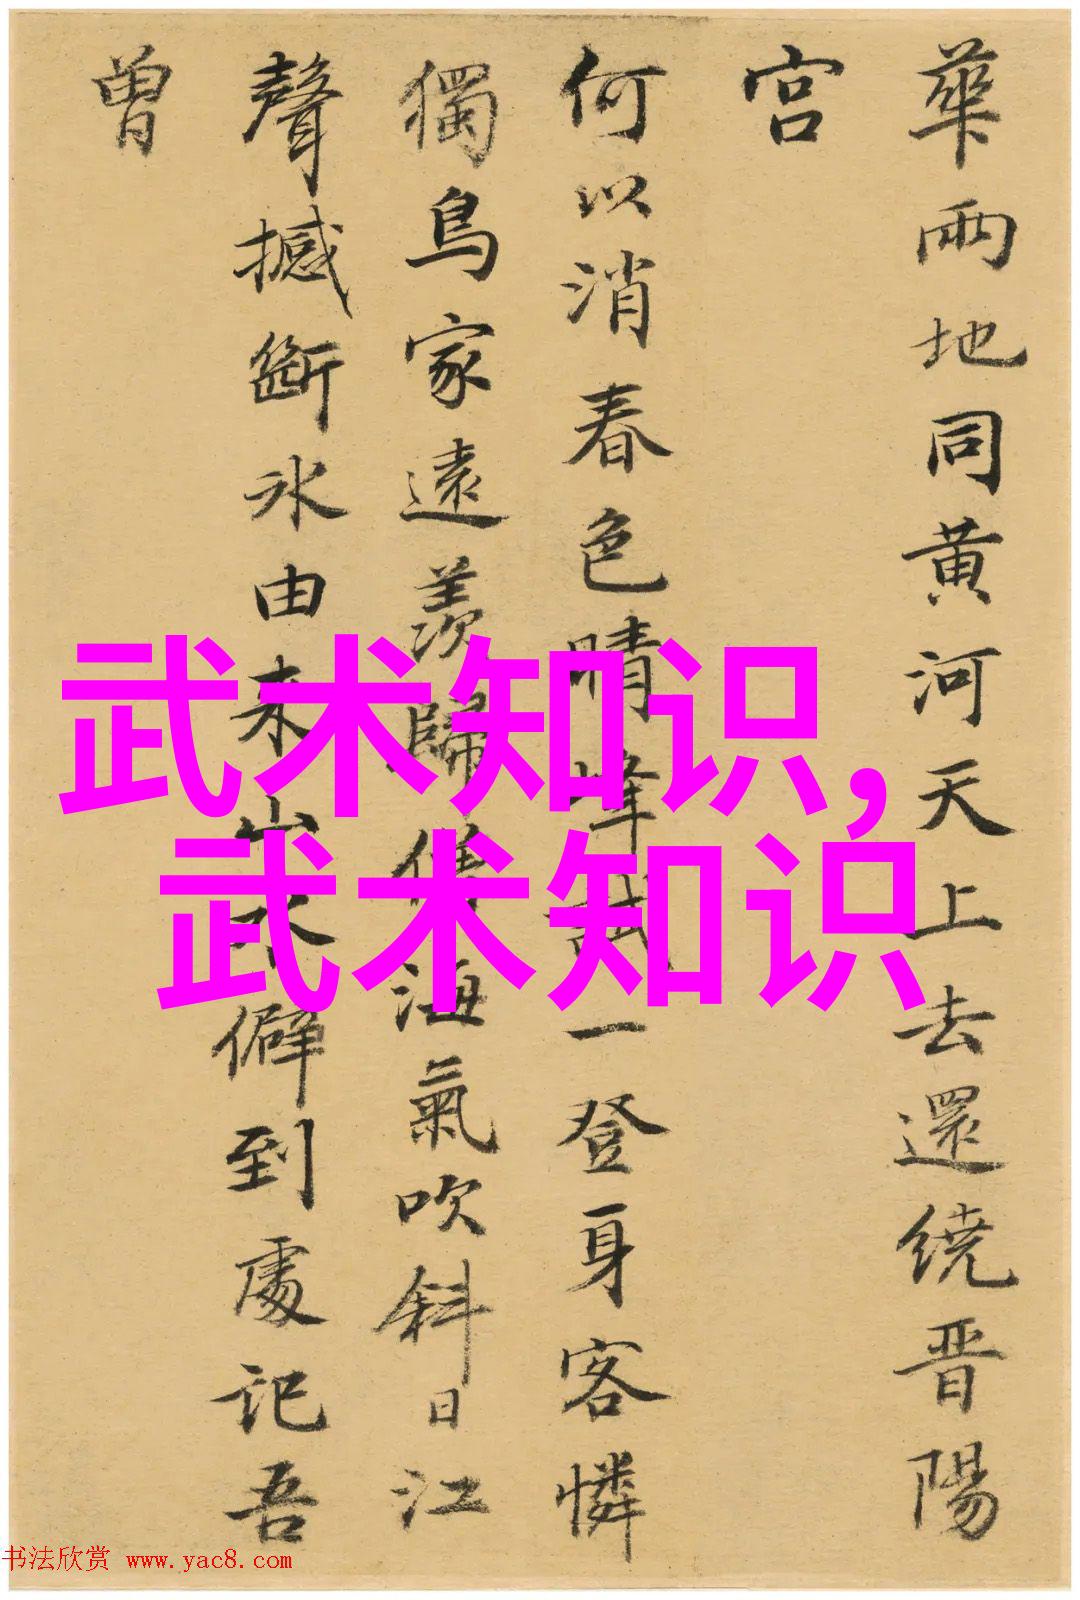 華兩地同黄河天上去還繞晋陽
宫
何以消春色晴峰試一登身客憐
獨鳥家遠羨歸僧海氣吹斜日江
聲撼斷冰由来山水僻到處记吾
曾
武术知识,
武术知识
书法欣赏 www.yac8.com